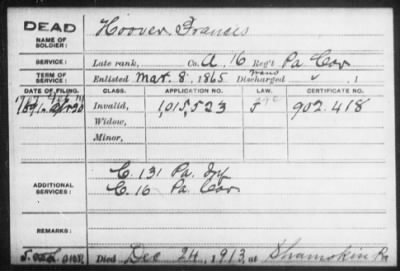 DEAD
NAME OF SOLDIER: Hoover Francis
SERVICE: Late rank, Co. A, 16 Reg't Pa Cav
TERM OF SERVICE: Enlisted Mar. 8, 1865 Discharged
DATE OF FILING. CLASS. APPLICATION NO. LAW. CERTIFICATE NO.
Invalid, 1,015,523 902.418
Widow,
Minor,
ADDITIONAL SERVICES: C. 131 Pa. Inf
C. 16 Pa Cav
REMARKS:
Died Dec 24, 1913, at Shamokin Pa